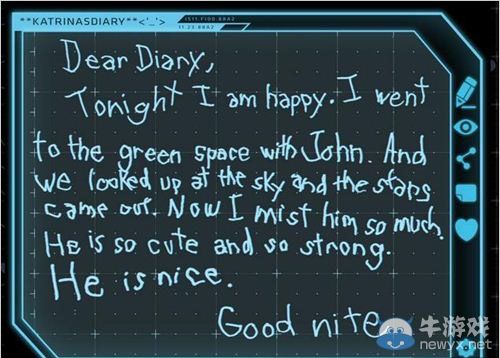 **KATRINASDIARY**<'_'>
1511.F100.88A2
11.23.88A2
Dear Diary,
Tonight I am happy. I went
to the green space with John. And
we looked up at the sky and the stars
came out. Now I mist him so much.
He is so cute and so strong.
He is nice.
Good nite
牛游戏
newyx.net